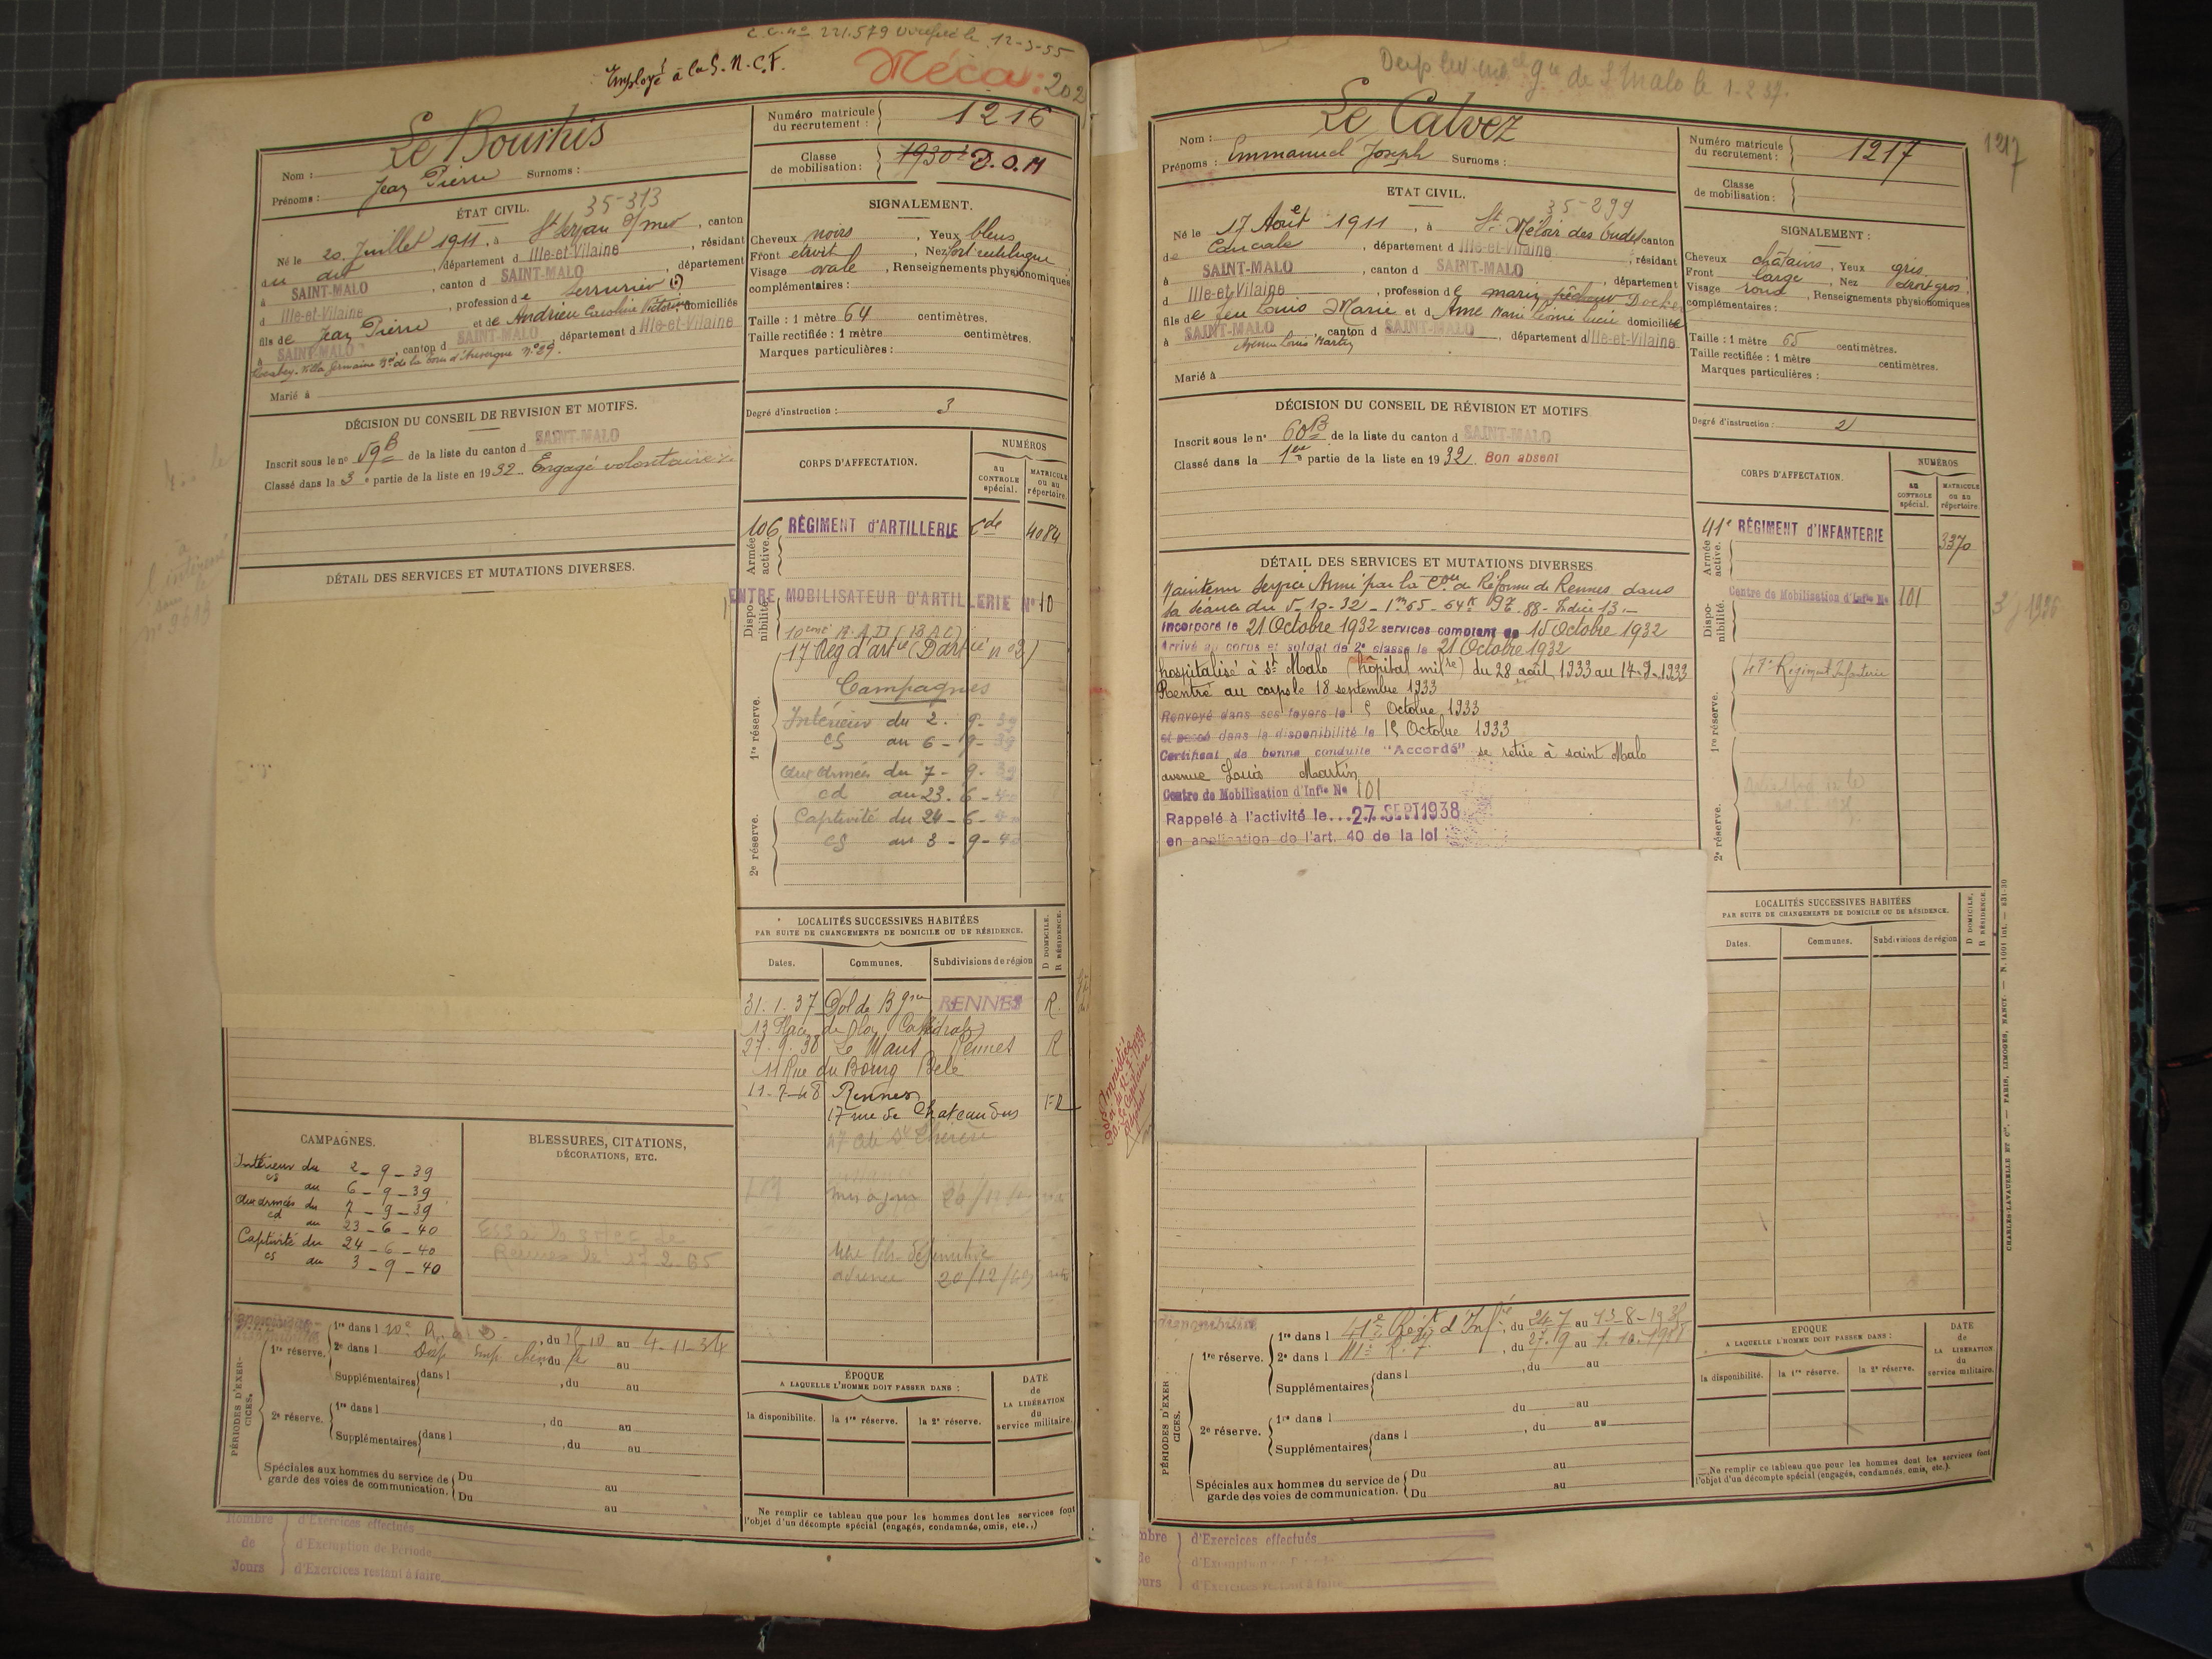 C.C. no 221.579 le 12-3-55
Employé à la S.N.C.F.
Méca: 202
Nom : Le Bourhis
Prénoms : Jean Pierre Surnoms :
Numéro matricule du recrutement : 1216
Classe de mobilisation : 1930
ÉTAT CIVIL.
35-313
Né le 20 Juillet 1911, à St Servan s/mer, canton
du dit, département d Ille-et-Vilaine, résidant
à SAINT-MALO, canton d SAINT-MALO, département
d Ille-et-Vilaine, profession de serrurier
fils de Jean Pierre et de Andrieu Caroline, domiciliés
à SAINT-MALO, canton d SAINT-MALO département d Ille-et-Vilaine
Villa Germaine Bd de la Tour d'Auvergne No 29.
Marié à
SIGNALEMENT.
Cheveux noirs, Yeux bleus
Front étroit, Nez fort rectiligne
Visage ovale, Renseignements physionomiques
complémentaires :
Taille : 1 mètre 64 centimètres.
Taille rectifiée : 1 mètre centimètres.
Marques particulières :
Degré d'instruction : 3
DÉCISION DU CONSEIL DE REVISION ET MOTIFS.
Inscrit sous le no 59 B de la liste du canton d SAINT-MALO
Classé dans la 3e partie de la liste en 1932. Engagé volontaire
CORPS D'AFFECTATION.
NUMÉROS
au CONTROLE spécial.
MATRICULE ou au répertoire.
Armée active.
106 RÉGIMENT d'ARTILLERIE 4084
DÉTAIL DES SERVICES ET MUTATIONS DIVERSES.
Disponibilité.
CENTRE MOBILISATEUR D'ARTILLERIE No 10
17 Reg d'artie
Campagnes
1re réserve.
Intérieur du 2 - 9 - 39
CS au 6 - 9 - 39
Aux Armées du 7 - 9 - 39
cd au 23 - 6 - 40
2e réserve.
Captivité du 24 - 6 - 40
CS au 3 - 9 - 40
LOCALITÉS SUCCESSIVES HABITÉES
PAR SUITE DE CHANGEMENTS DE DOMICILE OU DE RÉSIDENCE.
Dates. Communes. Subdivisions de région
D DOMICILE. R RÉSIDENCE.
31.1.37 Dol de Bgne RENNES R.
13 Place de la Cathédrale
27.9.38 Le Mans Rennes R
11 Rue du Bourg Belé
11-7-48 Rennes
17 rue de Chateaudun
20/12/49
CAMPAGNES.
Intérieur du 2 - 9 - 39
CS au 6 - 9 - 39
Aux armées du 7 - 9 - 39
cd au 23 - 6 - 40
Captivité du 24 - 6 - 40
CS au 3 - 9 - 40
BLESSURES, CITATIONS,
DÉCORATIONS, ETC.
Rennes le
PÉRIODES D'EXERCICES.
1re réserve.
1re dans l, du au 4-11-34
2e dans l du au
Supplémentaires dans l, du au
2e réserve.
1re dans l, du au
Supplémentaires dans l, du au
Spéciales aux hommes du service de garde des voies de communication. Du au
Du au
ÉPOQUE
A LAQUELLE L'HOMME DOIT PASSER DANS :
la disponibilité. la 1re réserve. la 2e réserve.
DATE de LA LIBÉRATION du service militaire.
Ne remplir ce tableau que pour les hommes dont les services font
l'objet d'un décompte spécial (engagés, condamnés, omis, etc..)
Nombre de Jours
d'Exercices effectués
d'Exemption de Période
d'Exercices restant à faire
de St Malo le 1-2-37.
1217
Nom : Le Calvez
Prénoms : Emmanuel Joseph Surnoms :
Numéro matricule du recrutement : 1217
Classe de mobilisation :
ETAT CIVIL.
35-299
Né le 17 Août 1911, à St Méloir des Ondes canton
de Cancale, département d Ille-et-Vilaine, résidant
à SAINT-MALO, canton d SAINT-MALO, département
d Ille-et-Vilaine, profession de marin pêcheur Docker
fils de feu Louis Marie et d Ame Marie Léonie Lucie domiciliée
à SAINT-MALO, canton d SAINT-MALO, département d Ille-et-Vilaine
Avenue Louis Martin
Marié à
SIGNALEMENT :
Cheveux châtains, Yeux gris
Front large, Nez droit gros
Visage rond, Renseignements physionomiques
complémentaires :
Taille : 1 mètre 65 centimètres.
Taille rectifiée : 1 mètre centimètres.
Marques particulières :
Degré d'instruction : 2
DÉCISION DU CONSEIL DE RÉVISION ET MOTIFS.
Inscrit sous le no 60 B de la liste du canton d SAINT-MALO
Classé dans la 1ère partie de la liste en 1932. Bon absent
CORPS D'AFFECTATION.
NUMÉROS
au CONTROLE spécial.
MATRICULE ou au répertoire.
Armée active.
41e RÉGIMENT D'INFANTERIE 3370
Disponibilité.
Centre de Mobilisation d'Infie No 101
1re réserve.
Régiment Infanterie
2e réserve.
DÉTAIL DES SERVICES ET MUTATIONS DIVERSES.
Maintenu Service Armé par la Con de Réforme de Rennes dans
sa séance du 5-10-32 - 1m65 - 64k - 88 - Indice 13.-
Incorporé le 21 Octobre 1932 services comptant de 15 Octobre 1932
Arrivé au corps et soldat de 2e classe le 21 Octobre 1932
hospitalisé à St Malo (hôpital milre) du 28 août 1933 au 17-9-1933
Rentré au corps le 18 septembre 1933
Renvoyé dans ses foyers le 5 Octobre 1933
et passé dans la disponibilité le 15 Octobre 1933
Certificat de bonne conduite "Accordé" se retire à saint Malo
avenue Louis Martin
Centre de Mobilisation d'Infie No 101
Rappelé à l'activité le... 27 SEPT 1938
en application de l'art. 40 de la loi
LOCALITÉS SUCCESSIVES HABITÉES
PAR SUITE DE CHANGEMENTS DE DOMICILE OU DE RÉSIDENCE.
Dates. Communes. Subdivisions de région
D DOMICILE. R RÉSIDENCE.
CHARLES-LAVAUZELLE ET Cie. — PARIS, LIMOGES, NANCY. — N. 1001 int. — 831-30
PÉRIODES D'EXERCICES.
disponibilité
1re réserve.
1re dans l 41e Régt d'Infie, du 24-7 au 13-8-1935
2e dans l, du 27-9 au 1.10.1938
Supplémentaires dans l, du au
du au
2e réserve.
1re dans l, du au
Supplémentaires dans l
Spéciales aux hommes du service de garde des voies de communication. Du au
Du au
EPOQUE
A LAQUELLE L'HOMME DOIT PASSER DANS :
la disponibilité. la 1re réserve. la 2e réserve.
DATE de LA LIBÉRATION du service militaire.
Ne remplir ce tableau que pour les hommes dont les services font
l'objet d'un décompte spécial (engagés, condamnés, omis, etc.).
d'Exercices effectués
d'Exercices restant à faire